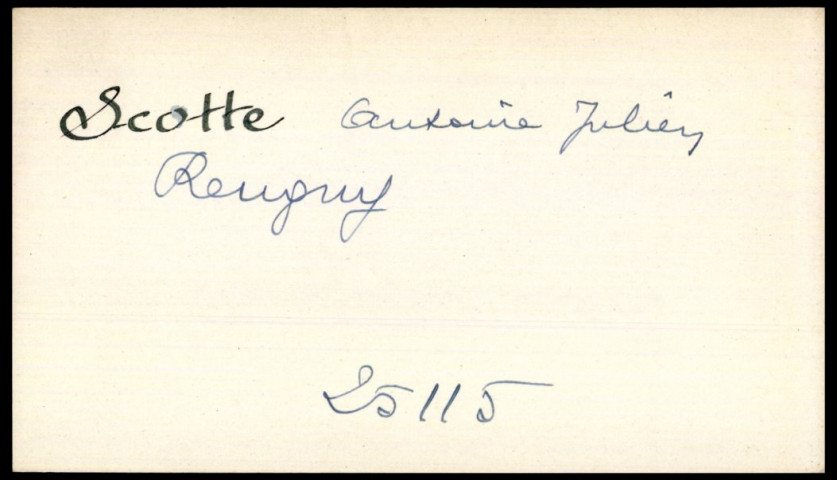 Scotte Antoine Julien
Reugny
25115